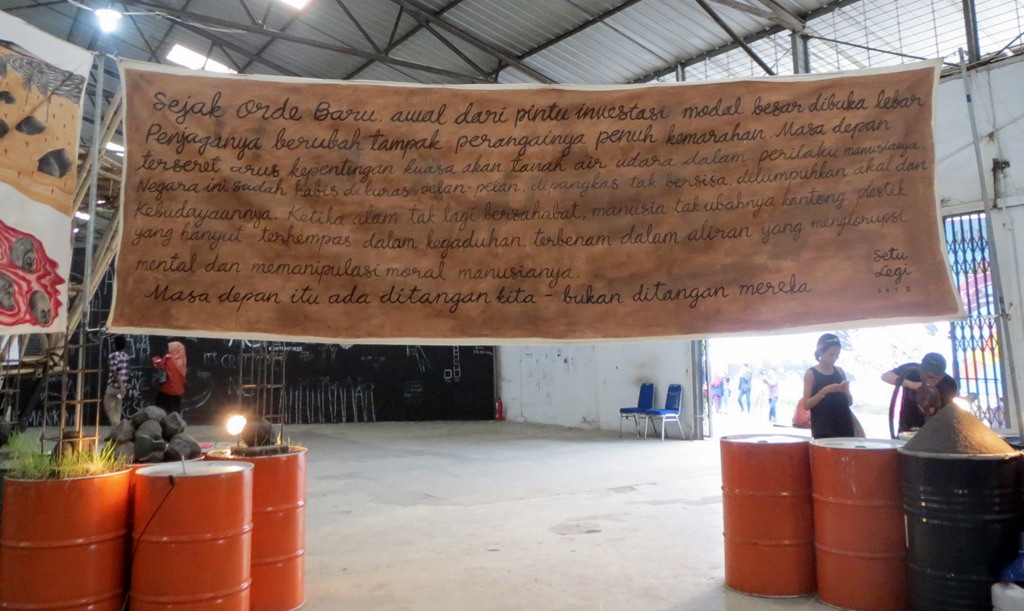 Sejak Orde Baru, awal dari pintu investasi modal besar dibuka lebar
Penjaganya berubah tampak perangainya penuh kemarahan. Masa depan
terseret arus kepentingan kuasa akan tanah air udara dalam perilaku manusianya.
Negara ini sudah habis dikuras pelan-pelan, dipangkas tak bersisa, dilumpuhkan akal dan
Kebudayaannya. Ketika alam tak lagi bersahabat, manusia tak ubahnya kantong plastik
yang hanyut terhempas dalam kegaduhan, terbenam dalam aliran yang mengkorupsi
mental dan memanipulasi moral manusianya.
Masa depan itu ada ditangan kita - bukan ditangan mereka
Setu
Legi